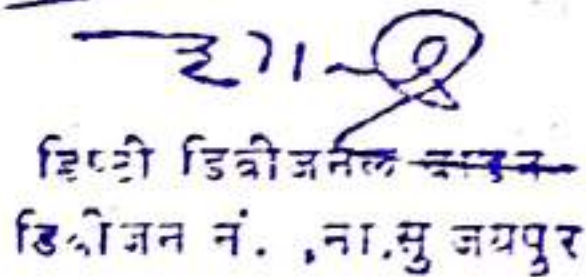 डिप्टी डिवीजनल
डिवीजन नं. ,ना.सु जयपुर